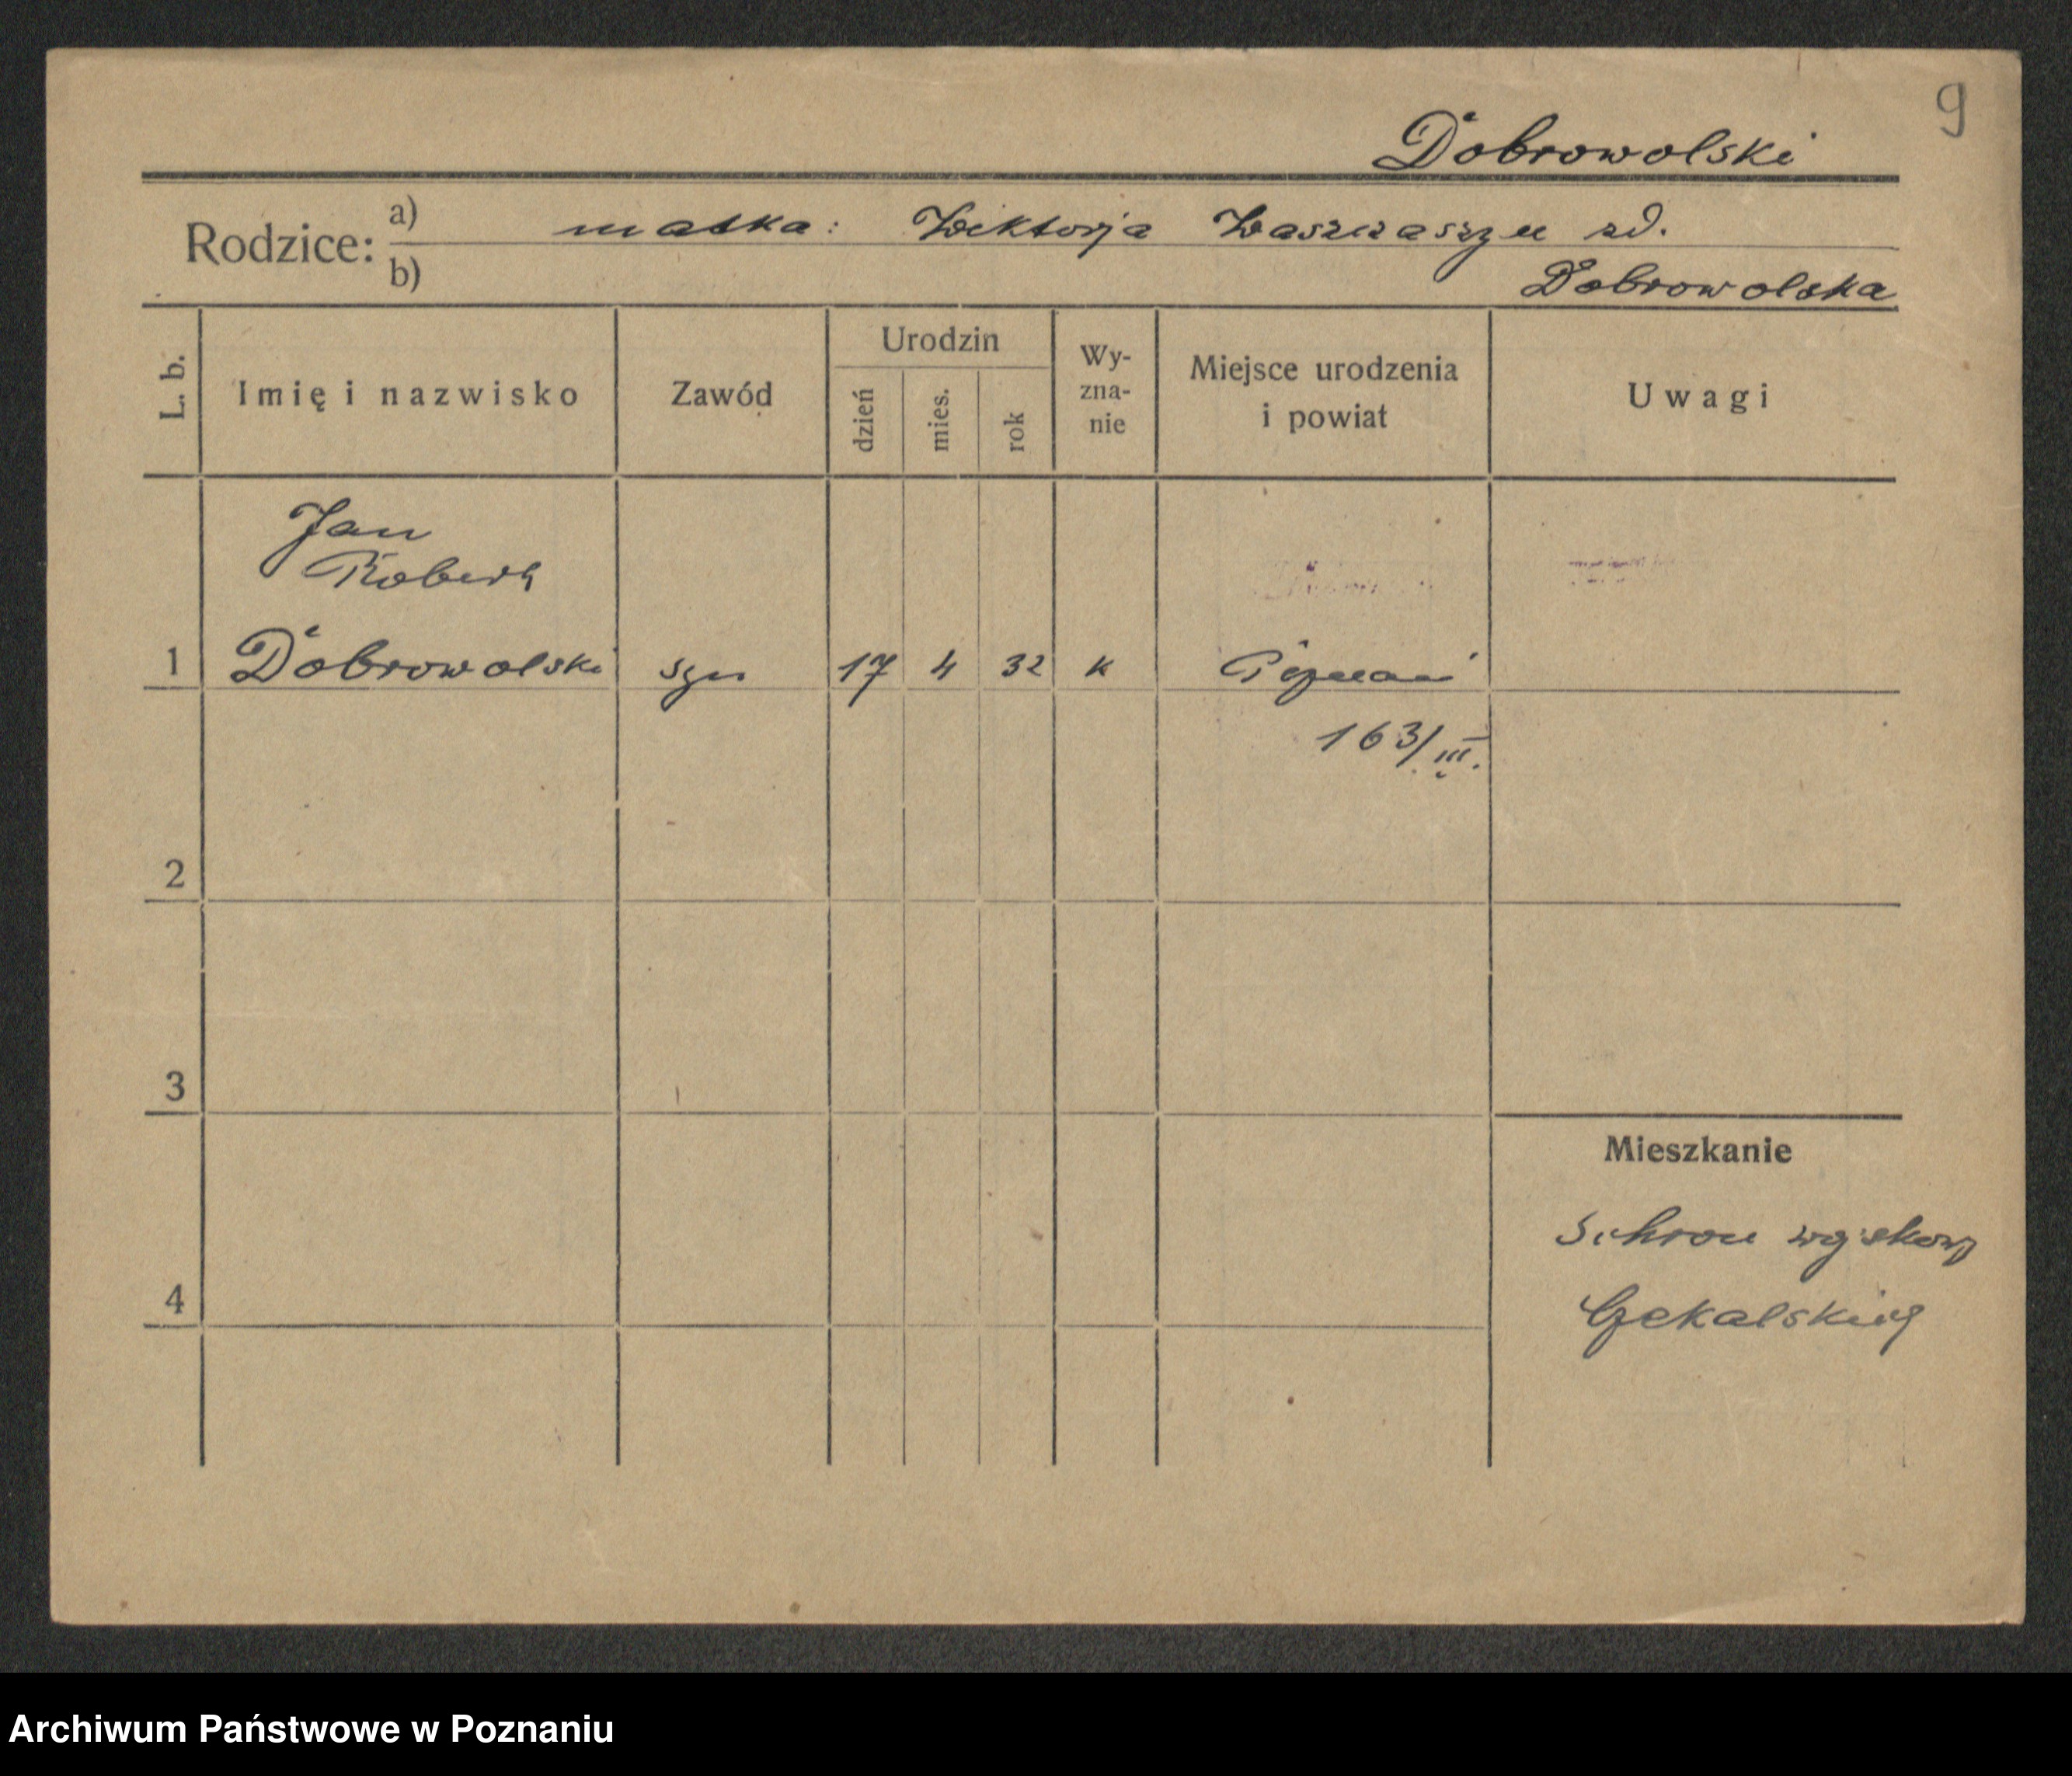 9
Dobrowolski
Rodzice: a) matka: Wiktorja Waszczaszyn zd.
b) Dobrowolska
L. b. Imię i nazwisko Zawód Urodzin dzień mies. rok Wy-zna-nie Miejsce urodzenia i powiat Uwagi
Jan
Robert
1 Dobrowolski syn 17 4 32 k Poznań
163/III.
2
3
Mieszkanie
Schron
4 Czekalskiej
Archiwum Państwowe w Poznaniu